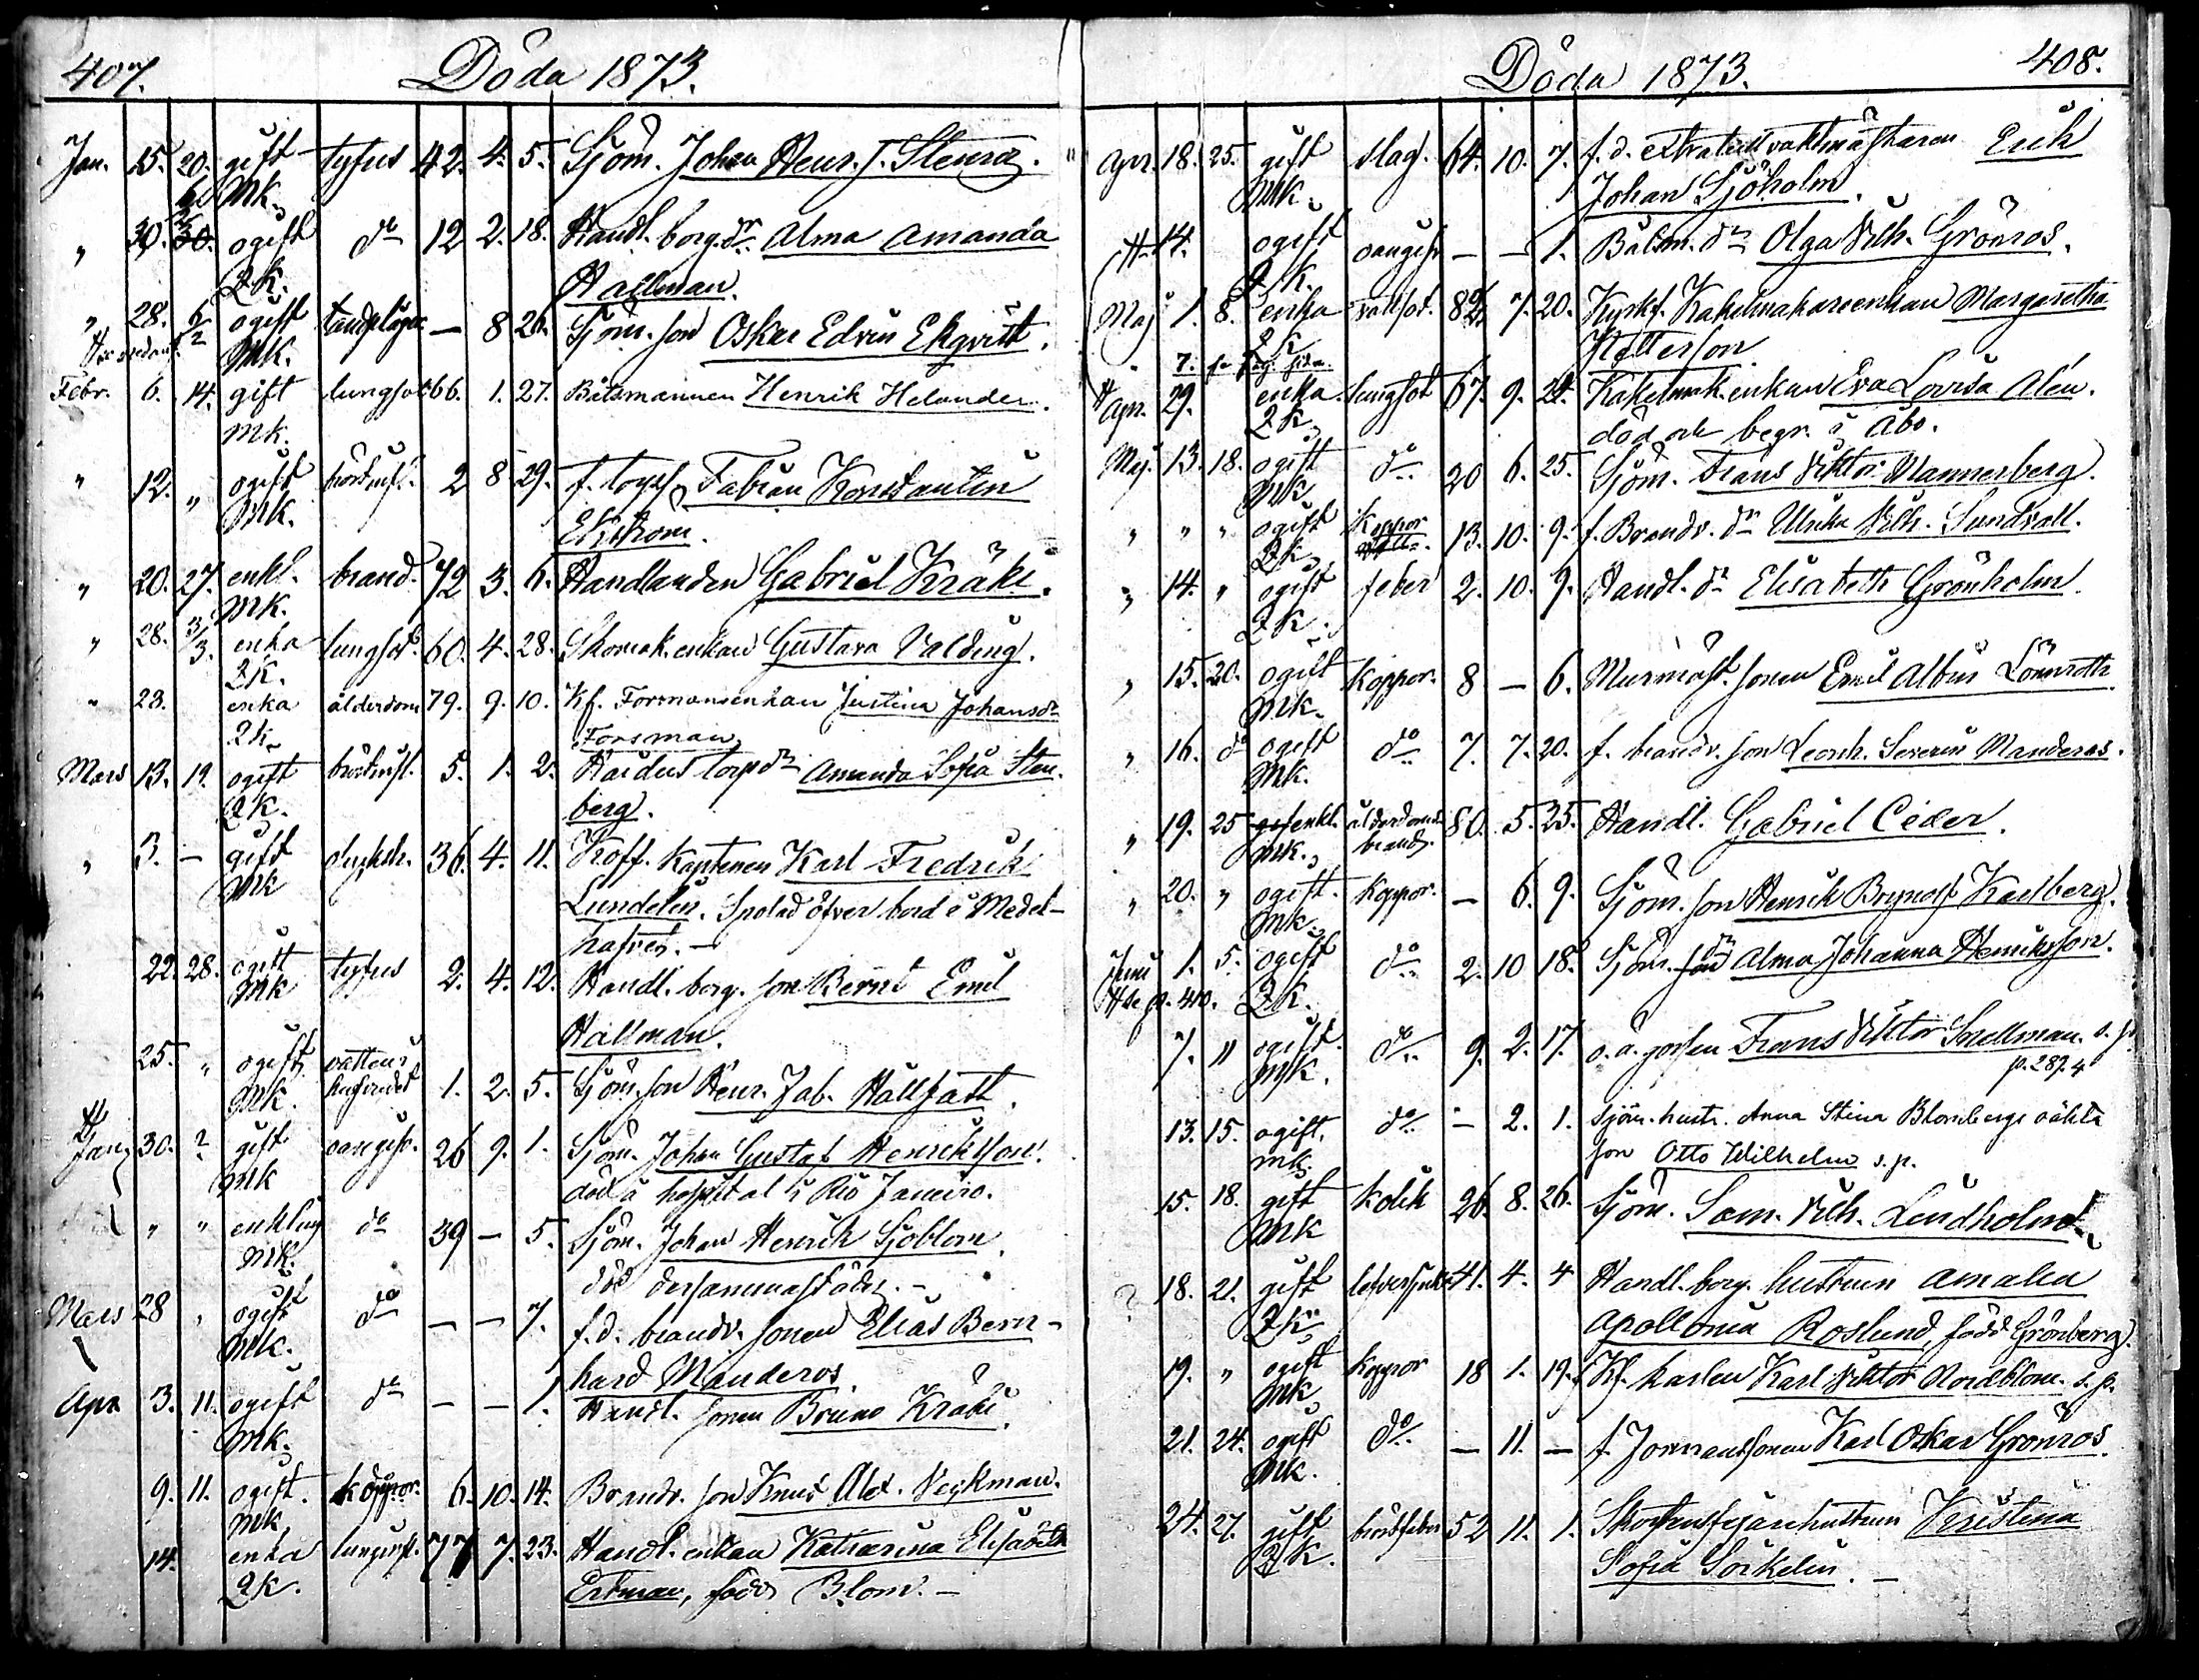 407. Döda 1873.
Jan. 15. 20. gift tyfus 42. 4. 5. Sjöm. Johan Henr. J. Stenroos.
mk.
„ 30. ogift do 12 2. 18. Handl. borg. dr. Alma Amanda
2 k. Hallman.
„ 28. 6/2 ogift tandplågor — 8 26. Sjöm. son Oskar Edvin Ekqvist.
mk.
Febr. 6. 14. gift lungsot 66. 1. 27. Båtsmannen Henrik Helander.
mk.
„ 12. „ ogift bröstinfl. 2 8 29. Fabian Konstantin
mk. Ekström.
„ 20. 27. enkl. brand. 72 3. 6. Handlanden Gabriel Kråke.
mk.
„ 28. 3/3. enka lungsot. 60. 4. 28. Skomak. enkan Gustava Valding.
2 k.
„ 23. enka ålderdom 79. 9. 10. Kf. Formansenkan Justina Johansdr
2 k. Forsman
Mars 13. 19. ogift bröstinfl. 5. 1. 2. Haidus torp. dr Amanda Sofia Sten-
2 k. berg.
„ 3. — gift olycksh. 36. 4. 11. Koff. Kaptenen Karl Fredrik
mk Lundelin. Spolad öfver bord i Medel-
hafvet. —
22. 28. ogift tyfus 2. 4. 12. Handl. borg. son Bernt Emil
mk Hallman.
25. „ ogift vatten i
mk. hufvudet 1. 2. 5. Sjöm. son Henr. Jab. Hållfast.
Jan. 30. ? gift oangifv. 26 9. 1. Sjöm. Johan Gustaf Henriksson.
mk död å hospital i Rio Janeiro.
„ „ enkling do 39 — 5. Sjöm. Johan Henrik Sjöblom
mk. död dersammastädes. —
Mars 28 „ ogift do — — 7. f. d. brandv. sonen Elias Bern-
mk. hard Manderos.
Apr. 3. 11. ogift do — — 1. Handl. sonen Bruno Kråke.
mk.
9. 11. ogift. koppor. 6. 10. 14. Brandv. son Knut Alex. Veckman.
mk
14. enka lunginfl. 77 7. 23. Handl. enkan Katharina Elisabeth
2 k. Ertman, född Blom. —
Döda 1873. 408.
Apr. 18. 25. gift slag. 64. 10. 7. f. d. vaktmästaren Erik
mk. Johan Sjöholm.
14. ogift oangifv — — 1. Båtsm. dr Olga Vilh. Grönros.
2 k.
Maj 1. 8. enka vattsot. 82 7. 20. Kyrkf. Kakelmakareenkan Margaretha
2 k Ketterson
Apr. 29. enka lungsot 67. 9. 24. Kakelmak. enkan Eva Lovisa Alén.
2 k död och begr. i Åbo.
Maj. 13. 18. ogift do 20 6. 25. Sjöm. Frans Viktor Mannerberg.
mk
„ „ „ ogift Koppor 13. 10. 9. f. Brandv. dr Ulrika Vilh. Sundvall.
2 k
„ 14. „ ogift feber 2. 10. 9. Handl. dr Elisabeth Grönholm.
2 k.
„ 15. 20. ogift koppor. 8 — 6. Murmäst. sonen Emil Albin Lönnroth
mk.
„ 16. do ogift do 7. 7. 20. f. brandv. son Leonh. Severin Manderos.
mk.
„ 19. 25 enkl. ålderdoms 80. 5. 25. Handl. Gabriel Ceder.
mk. brand.
„ 20. „ ogift. koppor. — 6. 9. Sjöm. son Henrik Brynolf Karlberg.
mk.
Juni 1. 5. ogift do 2. 10 18. Sjöm. dr Alma Johanna Henriksson.
Se p. 410. 2 k.
7. 11 ogift. do 9. 2. 17. o. ä. gossen Frans Viktor Snellman. s. p.
mk. p. 287.
13. 15. ogift. do — 2. 1. Sjöm. hustr. Anna Stina Blombergs oäkta
mk. son Otto Wilhelm s. p.
15. 18. gift kolik 26. 8. 26. Sjöm. Sam. Vilh. Lindholm.
mk
? 18. 21. gift 41. 4. 4 Handl. borg. hustrun Amalia
2 k. Apollonia Roslund, född Grönberg.
19. „ ogift koppor 18 1. 19. Kf. karlen Karl Viktor Nordblom. s. p.
mk
21. 24. ogift do — 11. — f. Formanssonen Karl Oskar Grönros.
mk.
24. 27. gift bröstfeber 52 11. 1. Skorstensfejarehustrun Kristina
2 k. Sofia Sirkelin. —